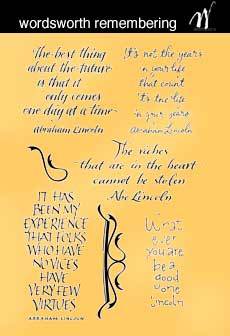 wordsworth remembering
W
The best thing
about the future
is that it
only comes
one day at a time
Abraham Lincoln
It's not the years
in your life
that count
It's the life
in your years
Abraham Lincoln
The riches
that are in the heart
cannot be stolen
Abe Lincoln
IT HAS
BEEN MY
EXPERIENCE
THAT FOLKS
WHO HAVE
NO VICES
HAVE
VERY FEW
VIRTUES
ABRAHAM LINCOLN
What
ever
you are
be a
good
one
Lincoln